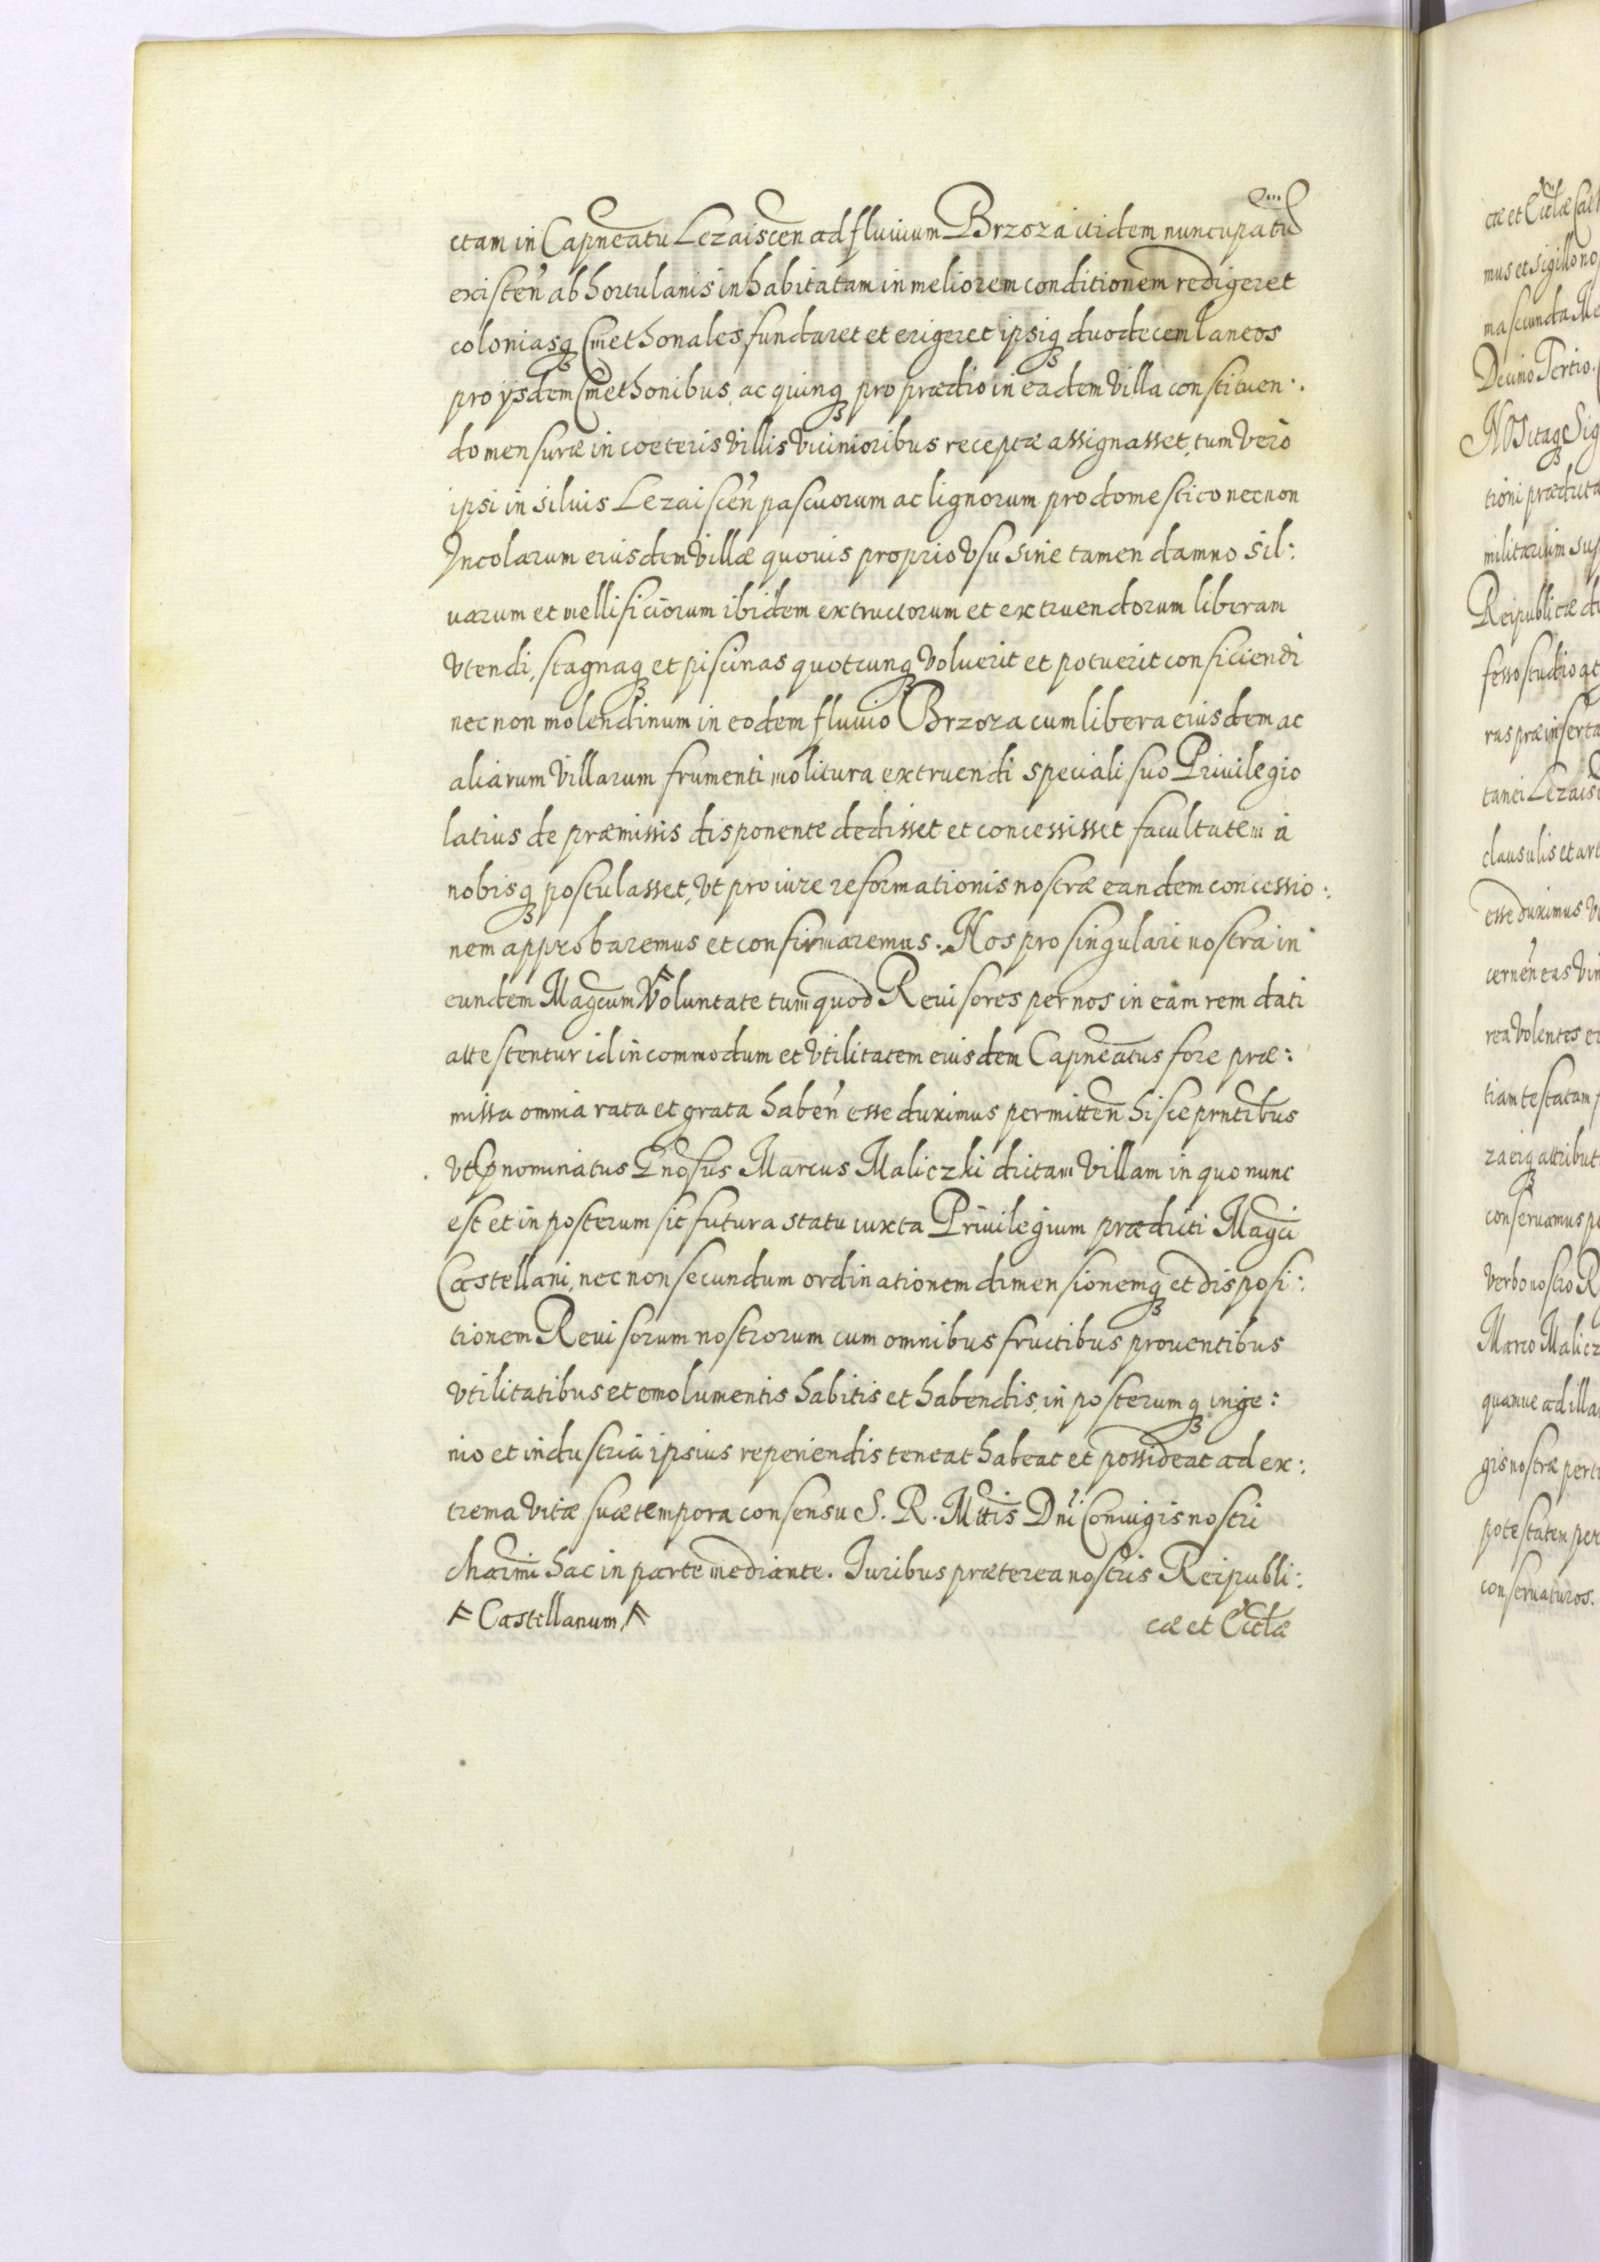 ctam in Capneatu Lezaiscen ad fluuium Brzoza itidem nuncupatu
existen ab hortulanis inhabitatam in meliorem conditionem redigeret
coloniasq Cmethonales fundaret et erigeret ipsiq duodecem laneos
pro ijsdem Cmethonibus, ac quinq pro prædio in eadem Villa constituen:
do mensuræ in cœteris Villis Vicinioribus receptæ assignasset, tum vero
ipsi in siluis Lezaiscen pascuorum ac lignorum pro domestico necnon
Incolarum eiusdem Villæ quouis proprio Vsu sine tamen damno sil:
uarum et mellificiorum ibidem extructorum et extruendorum liberam
Vtendi, stagnaq et piscinas quotcunq Voluerit et potuerit conficiendi
necnon molendinum in eodem fluuio Brzoza cum libera eiusdem ac
aliarum Villarum frumenti molitura extruendi speciali suo Priuilegio
latius de præmissis disponente dedisset et concessisset facultatem à
nobisq postulasset, Vt pro iure reformationis nostræ eandem concessio:
nem approbaremus et confirmaremus. Nos pro singulari nostra in
eundem Magcum Voluntate tum quod Reuisores per nos in eam rem dati
attestentur id in commodum et Vtilitatem eiusdem Capneatus fore præ:
missa omnia rata et grata haben esse duximus permitten hisce prntibus
Vt pnominatus Gnosus Marcus Maliczki dictam Villam in quo nunc
est et in posterum sit futura statu iuxta Priuilegium prædicti Magci
Castellani, necnon secundum ordinationem dimensionemq et disposi:
tionem Reuisorum nostrorum cum omnibus fructibus prouentibus
Vtilitatibus et emolumentis habitis et habendis, in posterumq inge:
nio et industria ipsius reperiendis teneat habeat et possideat ad ex:
trema Vitæ suæ tempora consensu S. R. Mttis Dni Coniugis nostri
charmi hac in parte mediante. Iuribus præterea nostris Reipubli:
Castellanum
cæ et Ecclæ